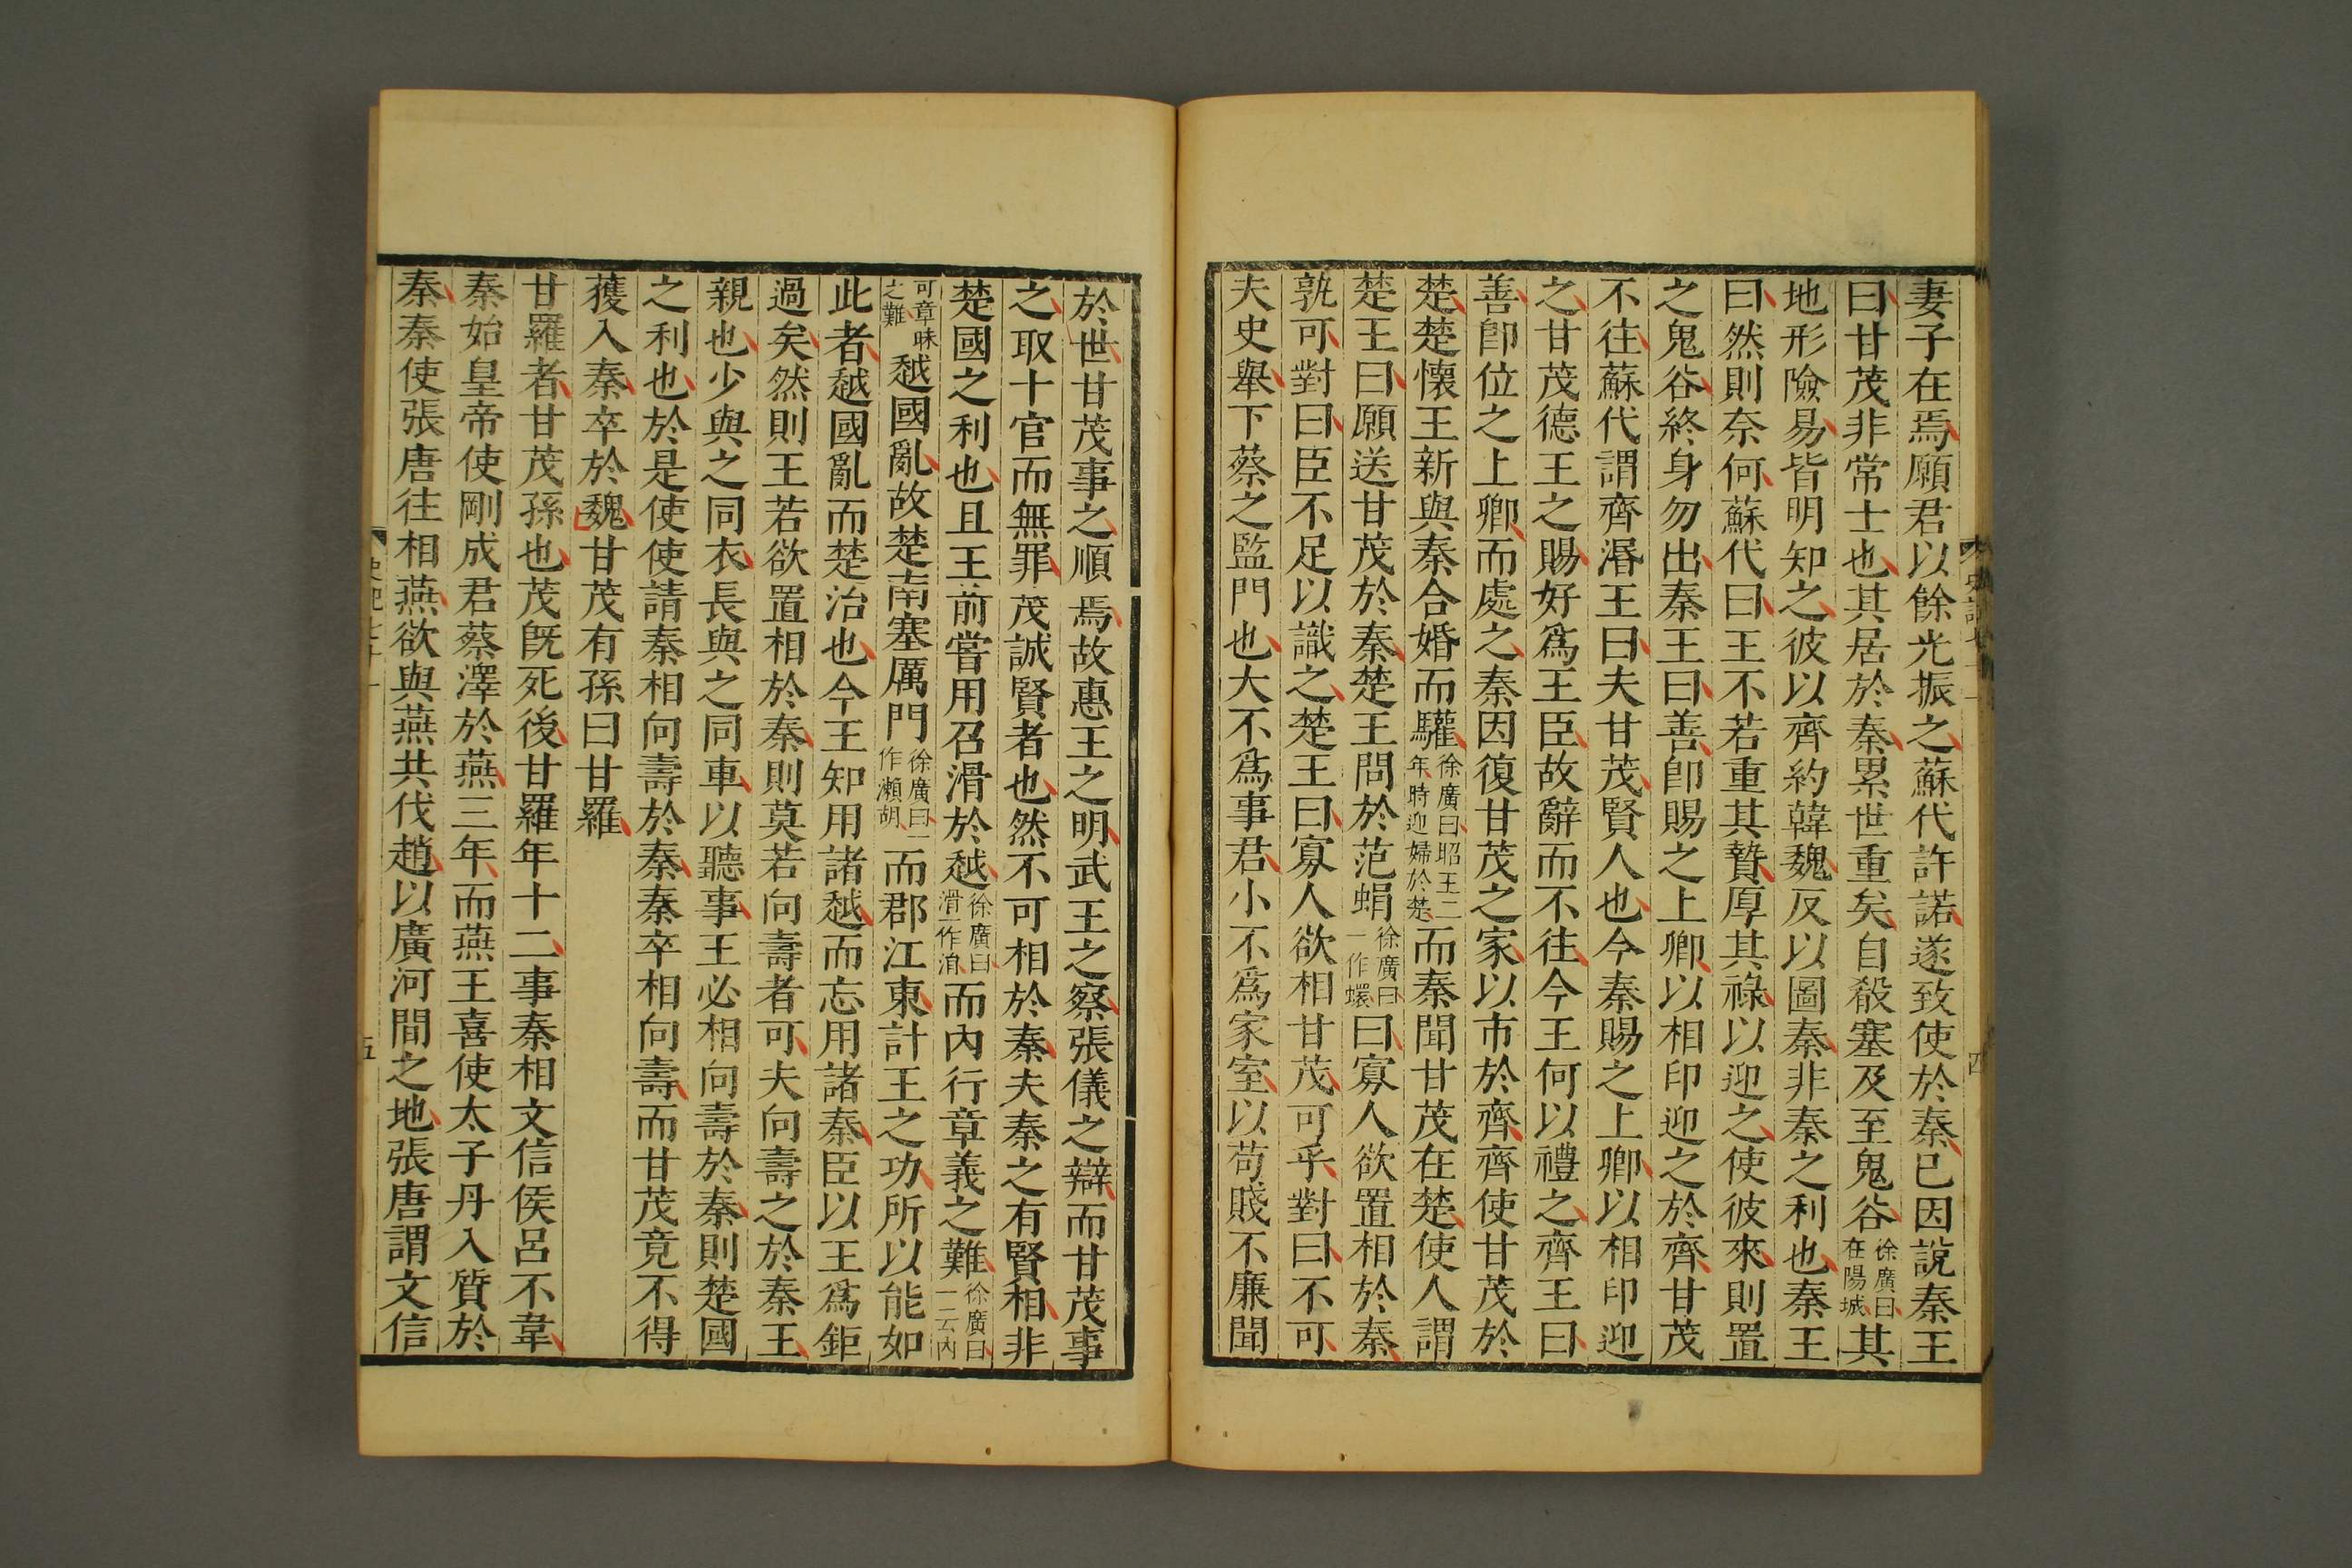 妻子在焉願君以餘光振之蘇代許諾遂致使於秦已因說秦王
曰甘茂非常士也其居於秦累世重矣自殽塞及至鬼谷徐廣曰在陽城其
地形險易皆明知之彼以齊約韓魏反以圖秦非秦之利也秦王
曰然則奈何蘇代曰王不若重其贄厚其祿以迎之使彼來則置
之鬼谷終身勿出秦王曰善卽賜之上卿以相印迎之於齊甘茂
不往蘇代謂齊湣王曰夫甘茂賢人也今秦賜之上卿以相印迎
之甘茂德王之賜好爲王臣故辭而不往今王何以禮之齊王曰
善卽位之上卿而處之秦因復甘茂之家以市於齊齊使甘茂於
楚楚懷王新與秦合婚而驩徐廣曰昭王二年時迎婦於楚而秦聞甘茂在楚使人謂
楚王曰願送甘茂於秦楚王問於范蜎徐廣曰一作蠉曰寡人欲置相於秦
孰可對曰臣不足以識之楚王曰寡人欲相甘茂可乎對曰不可
夫史舉下蔡之監門也大不爲事君小不爲家室以苟賤不廉聞
於世甘茂事之順焉故惠王之明武王之察張儀之辯而甘茂事
之取十官而無罪茂誠賢者也然不可相於秦夫秦之有賢相非
楚國之利也且王前嘗用召滑於越徐廣曰滑一作涓而內行章義之難徐廣曰一云內
可章昧之難越國亂故楚南塞厲門徐廣曰一作瀨胡而郡江東計王之功所以能如
此者越國亂而楚治也今王知用諸越而忘用諸秦臣以王爲鉅
過矣然則王若欲置相於秦則莫若向壽者可夫向壽之於秦王
親也少與之同衣長與之同車以聽事王必相向壽於秦則楚國
之利也於是使使請秦相向壽於秦秦卒相向壽而甘茂竟不得
獲入秦卒於魏甘茂有孫曰甘羅
甘羅者甘茂孫也茂旣死後甘羅年十二事秦相文信侯呂不韋
秦始皇帝使剛成君蔡澤於燕三年而燕王喜使太子丹入質於
秦秦使張唐往相燕欲與燕共伐趙以廣河間之地張唐謂文信
五